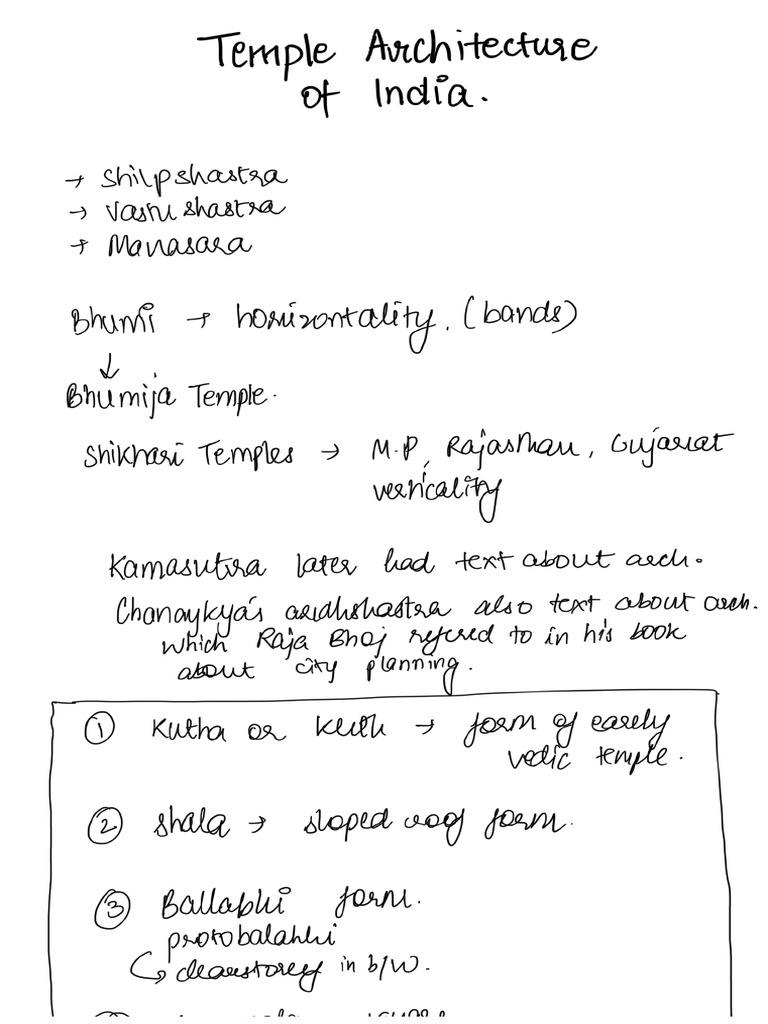 Temple Architecture
of India.
→ Shilpshastra
→ Vastushastra
→ Manasara
Bhumi → horizontality. (bands)
↓
Bhumija Temple.
Shikhari Temples → M.P, Rajasthan, Gujarat
verticality
Kamasutra later had text about arch.
Chanaykya's aridhshastra also text about arch.
which Raja Bhoj refered to in his book
about city planning.
① Kutha or → form of early
vedic temple.
② Shala → sloped roof form.
③ Ballabhi form.
protobalahhi
↳ clearstorey in b/w.